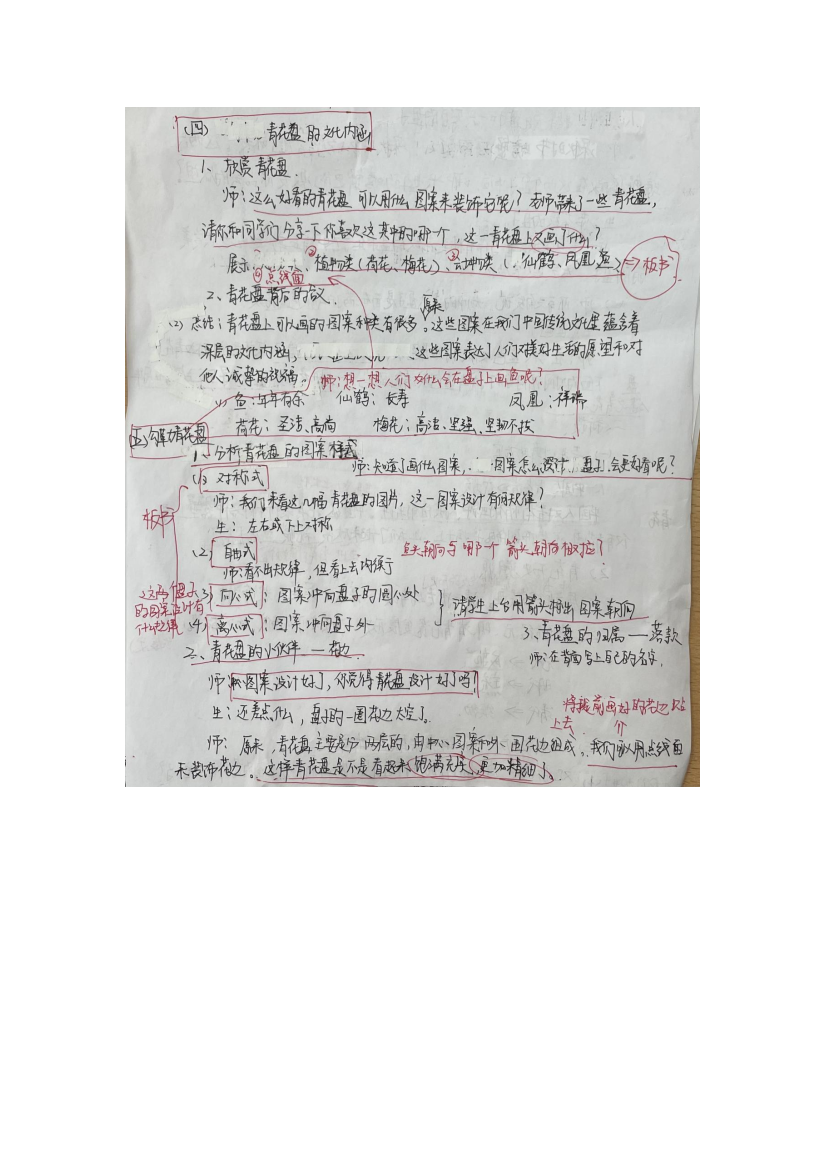 (四) 青花盘的文化内涵
1、欣赏青花盘.
师:这么好看的青花盘可以用什么图案来装饰它呢?老师带来了一些青花盘,
请你和同学们分享一下你喜欢这其中的哪一个,这一青花盘上又画了什么?
展示 ②植物类(荷花、梅花)、③动物类( 仙鹤、凤凰、鱼)⇒板书
①点线面
2、青花盘背后的含义.
原来
(2) 总结:青花盘上可以画的图案种类有很多。这些图案在我们中国传统文化里蕴含着
深层的文化内涵, 这些图案表达了人们对美好生活的愿望和对
他人诚挚的祝福. 师:想一想人们为什么会在盘子上画鱼呢?
(1) 鱼:年年有余 仙鹤:长寿 凤凰:祥瑞
荷花:圣洁、高尚 梅花:高洁、坚强、坚韧不拔
(五) 青花盘
1、分析青花盘的图案样式
师:知道了画什么图案, 图案怎么设计 盘子会更好看呢?
(1) 对称式
师:我们来看这几幅青花盘的图片,这一图案设计有何规律?
板书
生:左右或上下对称
(2) 自由式
鱼头朝向与哪一个箭头朝向相反了
师:看不出规律,但看上去均衡
这两个盘子的图案设计有什么规律
(3) 向心式:图案冲向盘子的圆心处
(4) 离心式:图案冲向盘子外
} 请学生上台用箭头指出图案朝向
3、青花盘的归属——落款
师:在背面写上自己的名字.
二、青花盘的小伙伴——花边
师: 图案设计好了,你觉得青花盘设计好了吗?
生:还差点什么,盘子的一圈花边太空了。
将提前画好的花边贴上去
师:原来,青花盘主要是分两层的,由中心图案和外围花边组成,我们可以用点线面
来装饰花边。这样青花盘是不是看起来饱满充实,更加精细了.